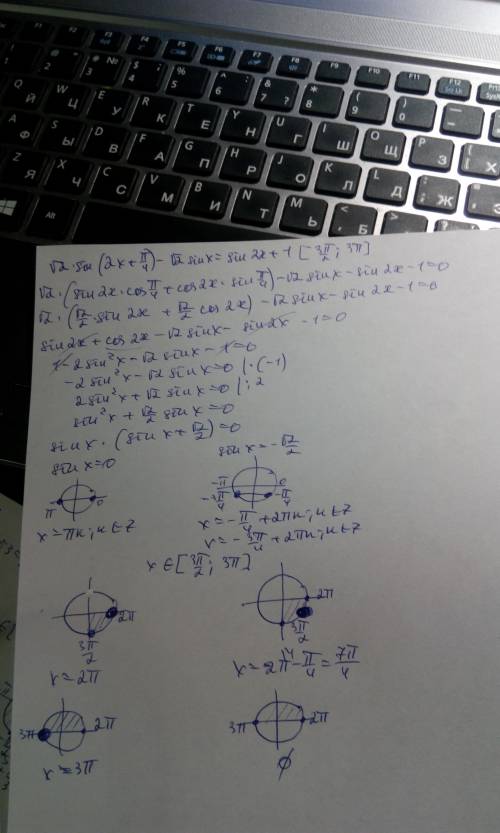 F1 F2 F3 F4 F5 F6 F7 F8 F9 F10 F11 F12
! 1 @ 2 # № 3 $ ; 4 % 5 ^ : 6 & ? 7 * 8 ( 9 ) 0 _ -
Q Й W Ц E У R К T Е Y Н U Г I Ш O Щ P З { [ Х
A Ф S Ы D В F А G П H Р J О K Л L Д : ; Ж
Z Я X Ч C С V М B И N Т M Ь < , Б
Alt
√2·sin(2x+π/4)-√2 sinx=sin2x+1 [-3π/2; 3π]
√2·(sin2x·cosπ/4+cos2x·sinπ/4)-√2 sinx-sin2x-1=0
√2·(√2/2·sin2x+√2/2 cos2x)-√2 sinx-sin2x-1=0
sin2x+cos2x-√2 sinx-sin2x-1=0
1-2sin²x-√2 sinx-1=0
-2sin²x-√2 sinx=0 |·(-1)
2sin²x+√2 sinx=0 |:2
sin²x+√2/2 sinx=0
sinx·(sinx+√2/2)=0
sinx=0 sinx=-√2/2
π 0 -π/2 -3π/4 0 -π/4
x=πn; n∈Z x=-π/4+2πn; n∈Z
x=-3π/4+2πn; n∈Z
x∈[3π/2; 3π]
2π 3π/2 2π 3π/2
x=2π x=2π-π/4=7π/4
3π 2π 3π 2π
x=3π ∅